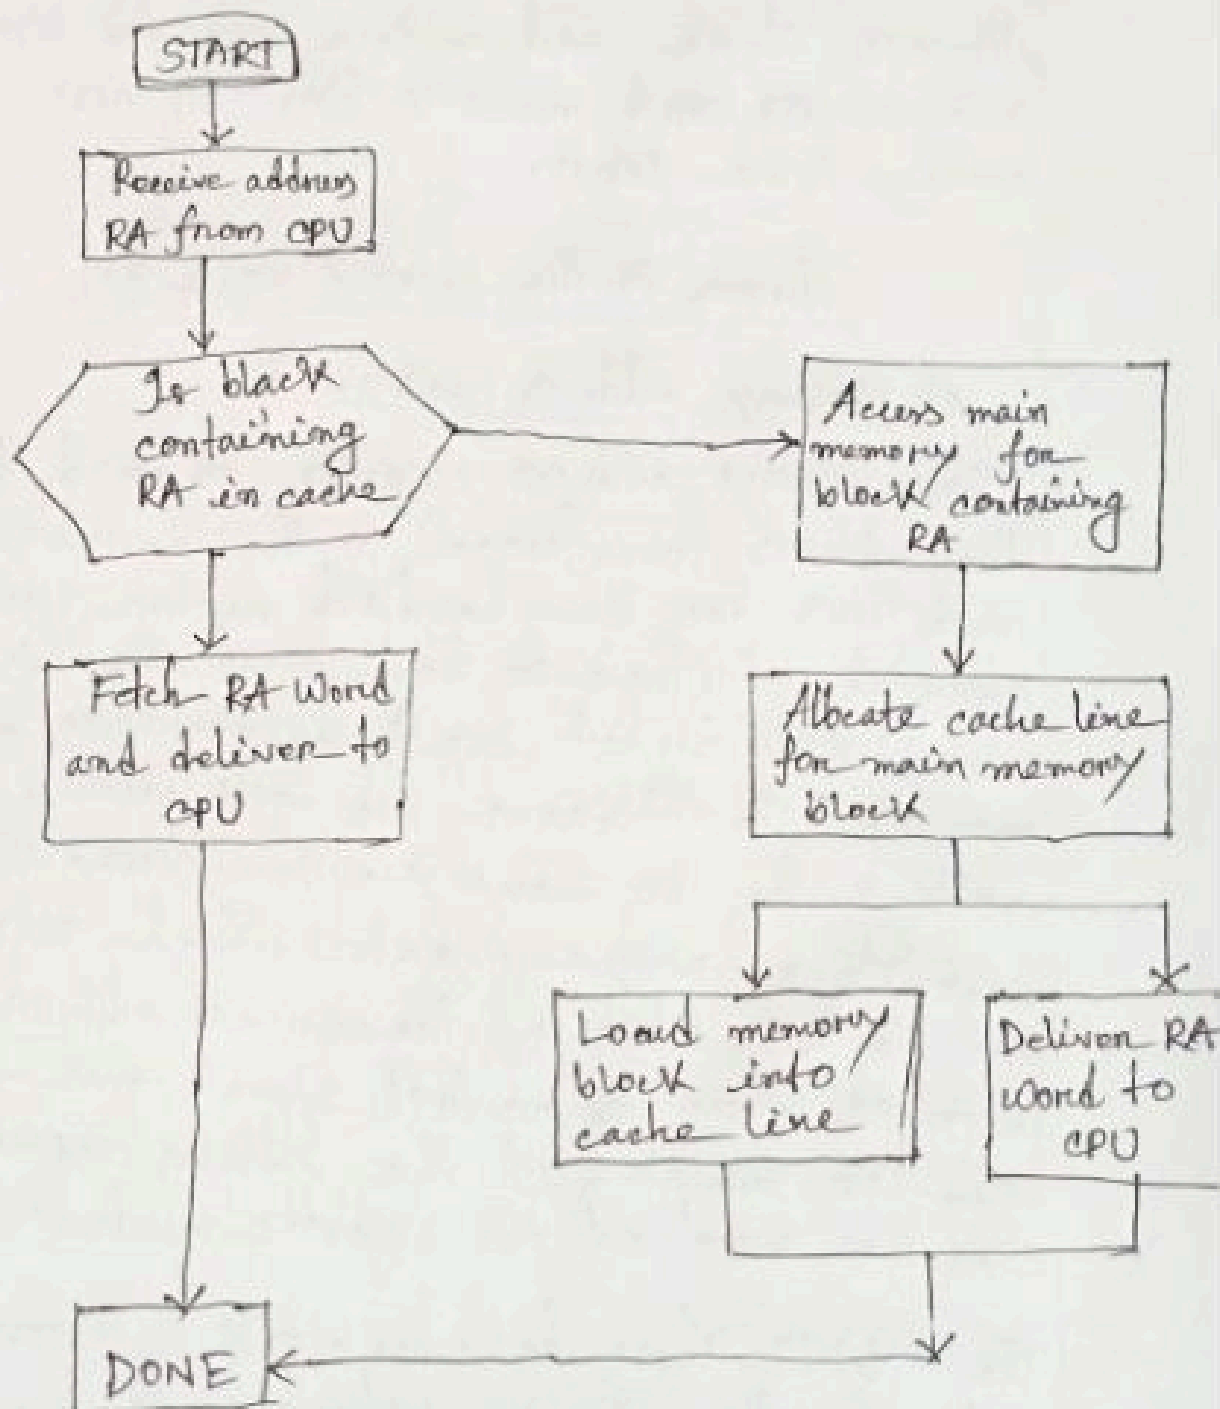 START
Receive address
RA from CPU
Is black
containing
RA in cache
Access main
memory for
block containing
RA
Fetch RA Word
and deliver to
CPU
Allocate cache line
for main memory
block
Load memory
block into
cache line
Deliver RA
word to
CPU
DONE